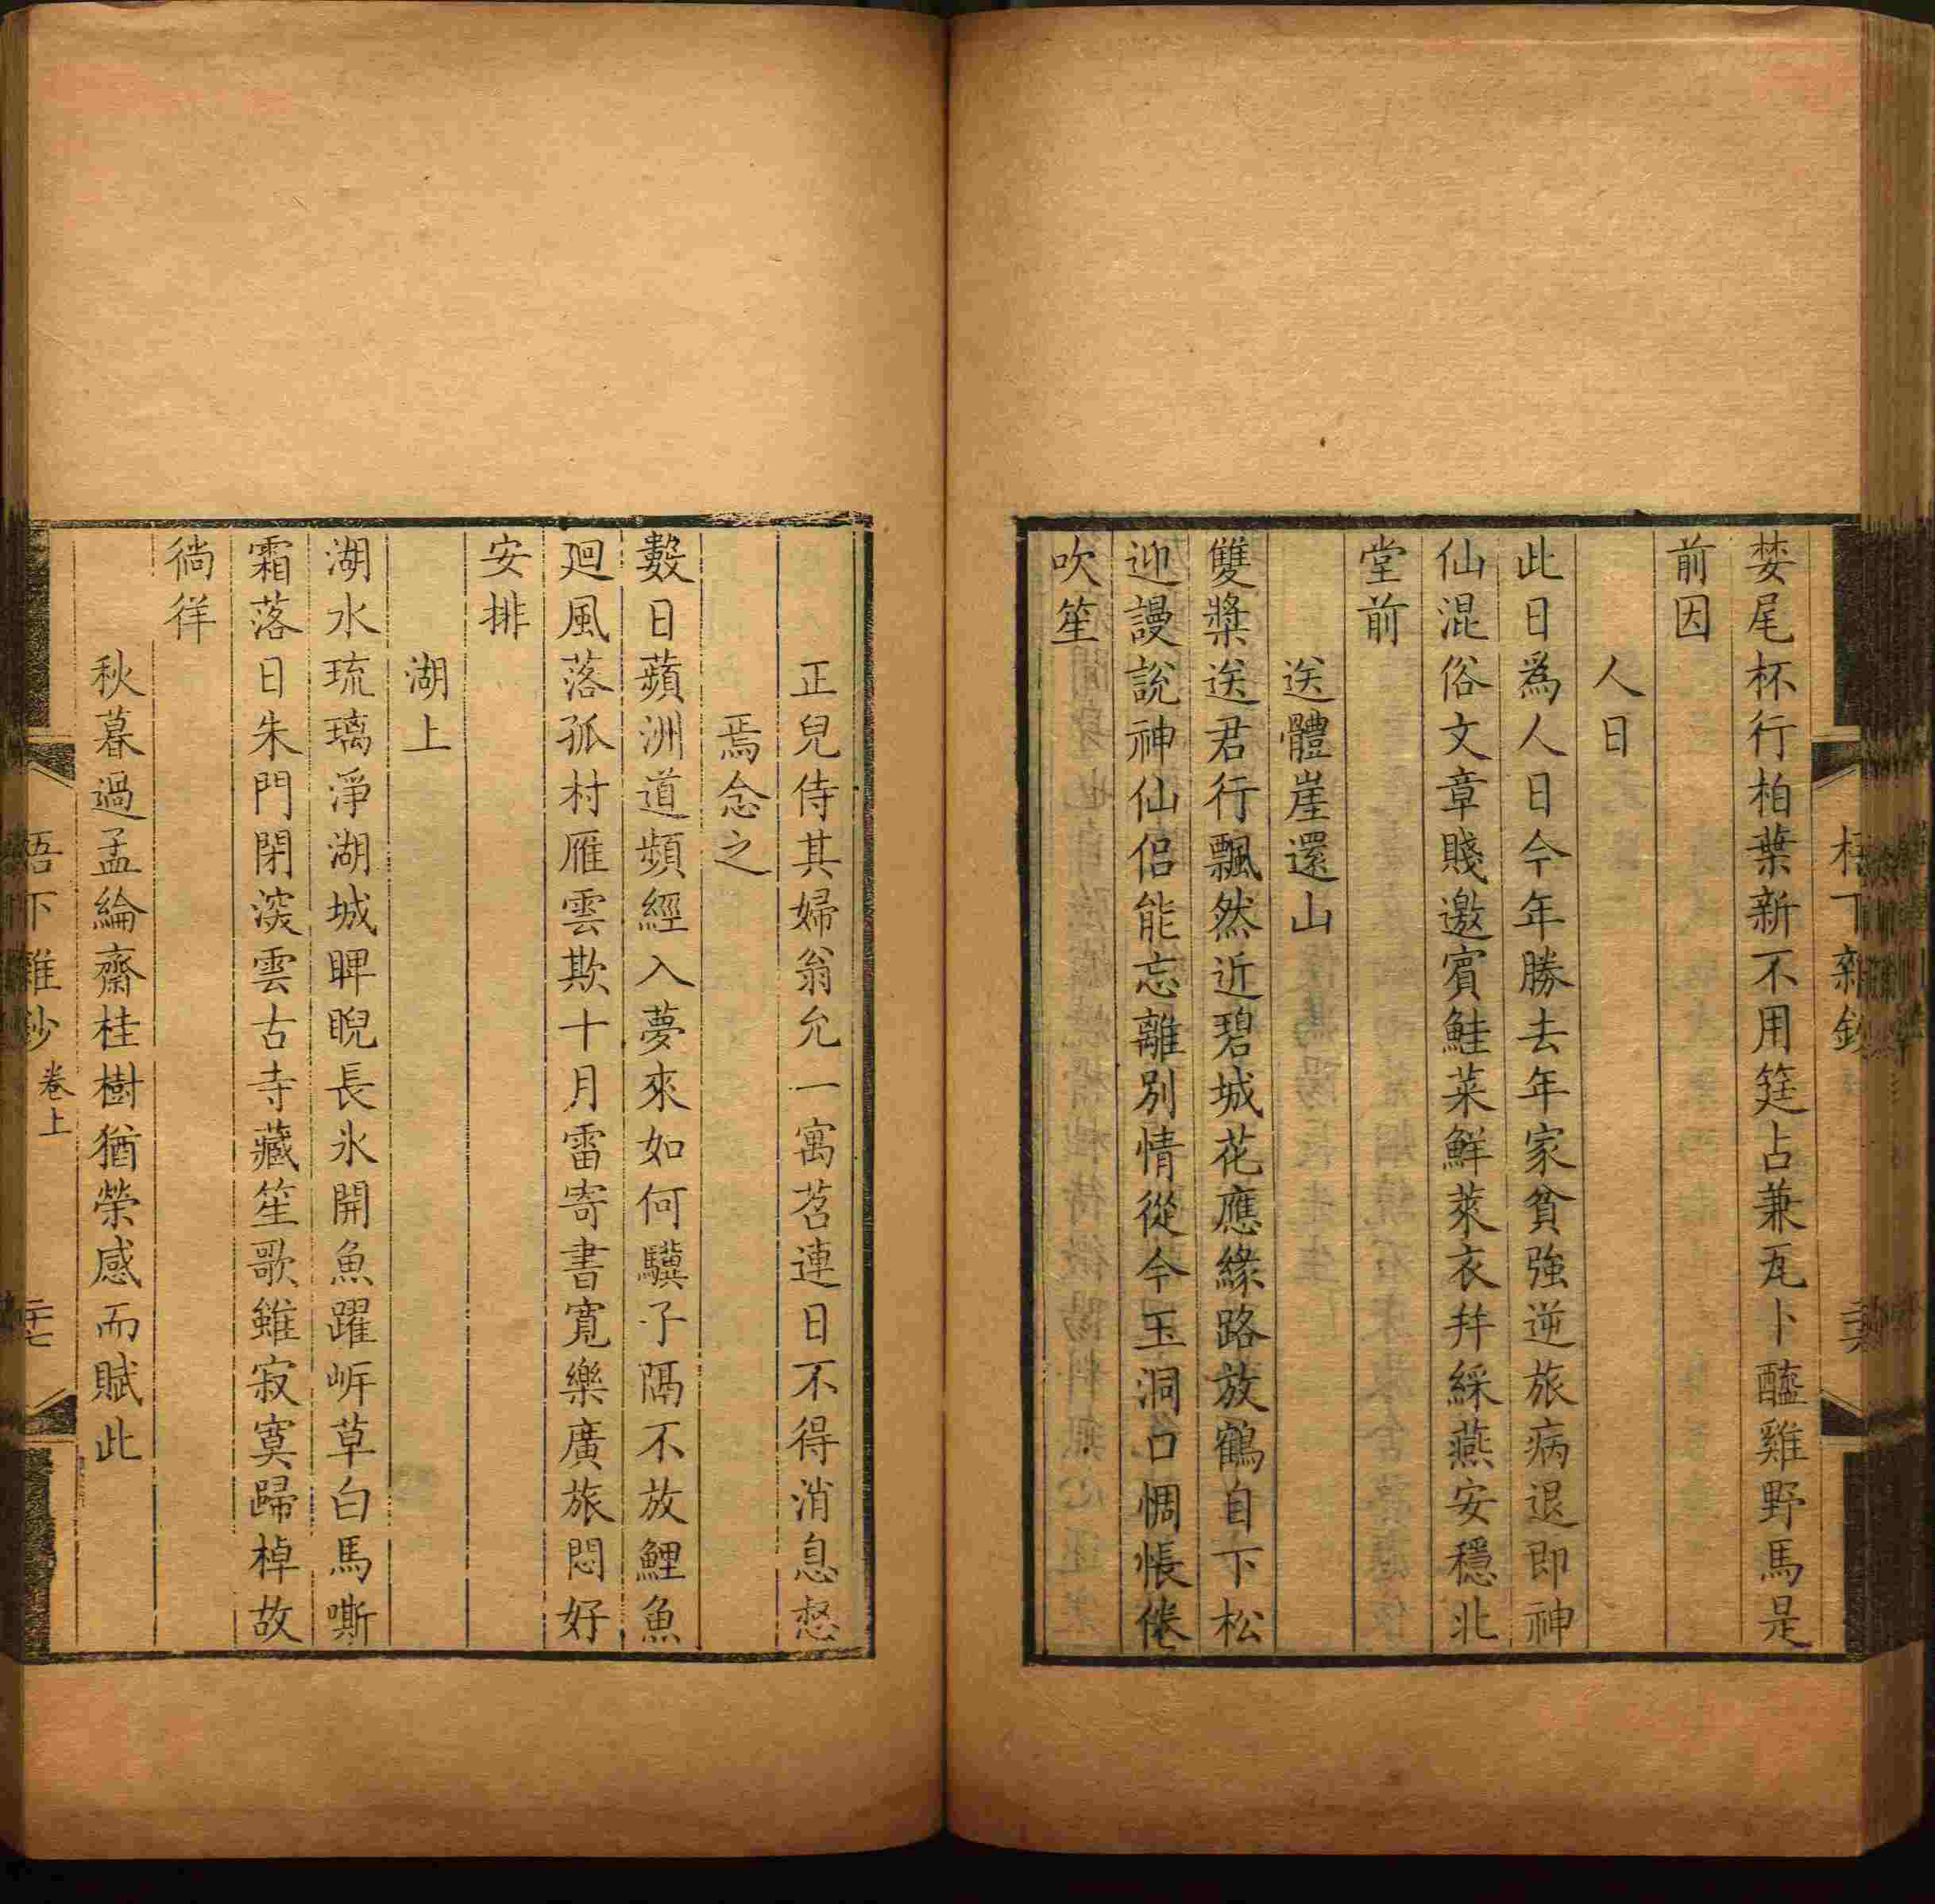 婪尾杯行柏葉新不用筳占兼瓦卜醯雞野馬是
前因
人日
此日爲人日今年勝去年家貧強逆旅病退即神
仙混俗文章賤邀賓鮭菜鮮萊衣幷綵燕安穩北
堂前
送體崖還山
雙槳送君行飄然近碧城花應緣路放鶴自下松
迎謾說神仙侣能忘離別情從今玉洞口惆悵倦
吹笙
正兒侍其婦翁允一寓苕連日不得消息惄
焉念之
數日蘋洲道頻經入夢來如何驥子隔不放鯉魚
廻風落孤村雁雲欺十月雷寄書寬樂廣旅悶好
安排
湖上
湖水琉璃淨湖城睥睨長氷開魚躍岸草白馬嘶
霜落日朱門閉深雲古寺藏笙歌雖寂寞歸棹故
徜徉
秋暮過孟綸齋桂樹猶榮感而賦此
梧下雜鈔 卷上 二十七